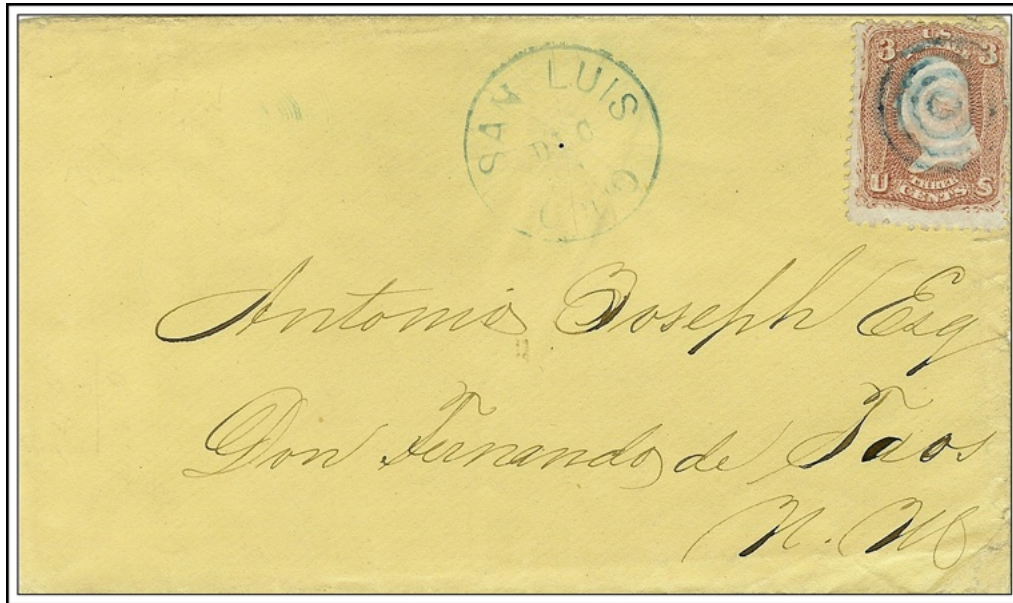 SAN LUIS
DEC
3 U.S. 3
U THREE CENTS S
Antonio Joseph Esq
Don Fernando de Taos
N. M